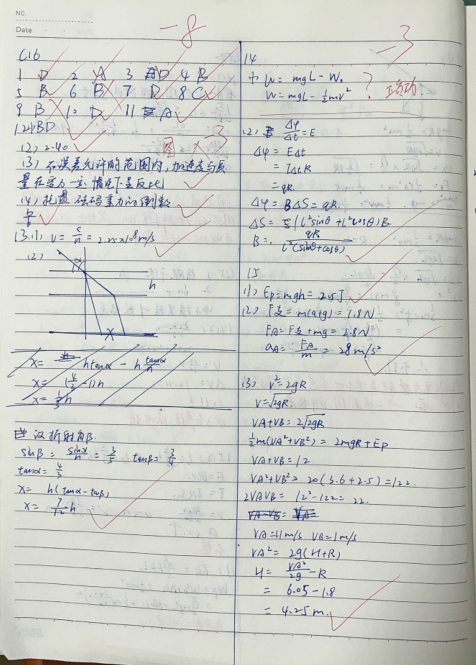 NO.
Date
-8
C16
1 D 2 A 3 D 4 B
5 B 6 B 7 D 8 C
9 B 10 D 11 A
12(1) BD
(2) 2.40
(3) 在误差允许的范围内,加速度与质
量在合力一定情况下成反比
(4) 托盘砝码重力的测量
13.(1) v = c/n = 2.25×10^8 m/s
(2)
α
h
x
x = h tanα - h
x = 1/3 h
设折射角β
sinβ = sinα/n = 3/5 tanβ = 3/4
tanα = 4/3
x = h(tanα - tanβ)
x = 7/12 h
-3
14
W = mgL - W₀
W = mgL - ½mv²
?
(2) Δφ/Δt = E
Δφ = EΔt
= IΔtR
= qR
Δφ = BΔS = qR
B = qR / L²(sinθ+cosθ)
15
(1) Ep = mgh = 2.5 J
(2) F支 = m(a+g) = 1.8 N
FA = F支 + mg = 2.8 N
aA = FA/m = 28 m/s²
(3) v² = 2gR
v = √2gR
VA + VB = 2√2gR
½m(VA² + VB²) = 2mgR + Ep
VA + VB = 12
VA² + VB² = 20(3.6 + 2.5) = 122
2VAVB = 12² - 122 = 22
VA = 11 m/s VB = 1 m/s
VA² = 2g(H+R)
H = VA²/2g - R
= 6.05 - 1.8
= 4.25 m